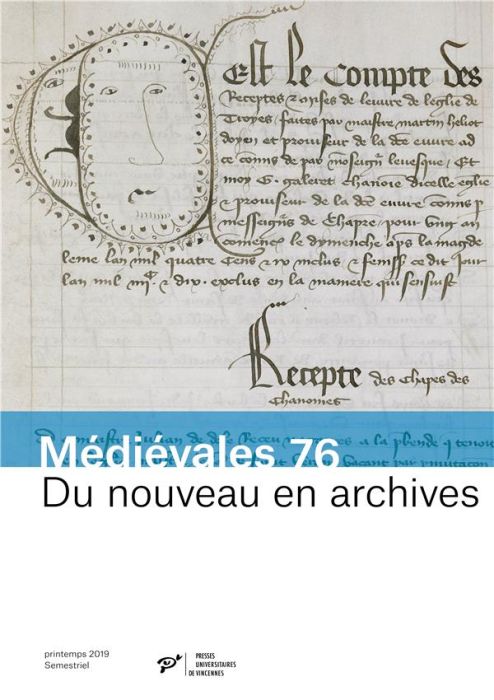 Cest le compte des
Receptes & mises de leuvre de leglise de
Troyes faites par maistre martin heliot
doyen et proviseur de la dce euvre ad
ce comis de par moseignr levesque, Et
moy G. galeret chanoine dicelle eglise
& proviseur de la dce euvre comis p
messeigrs de chapre pour ung an
comence le dymenche aps la magde
leine lan mil quatre cens & ix inclus & feniss ce dit jour
lan mil iiijc & dix exclus en la maniere qui sensuist
Recepte des chapes des
chanoines
a la pbende q tenoit
vacant par pmutacon
Médiévales 76
Du nouveau en archives
printemps 2019
Semestriel
PRESSES
UNIVERSITAIRES
DE VINCENNES